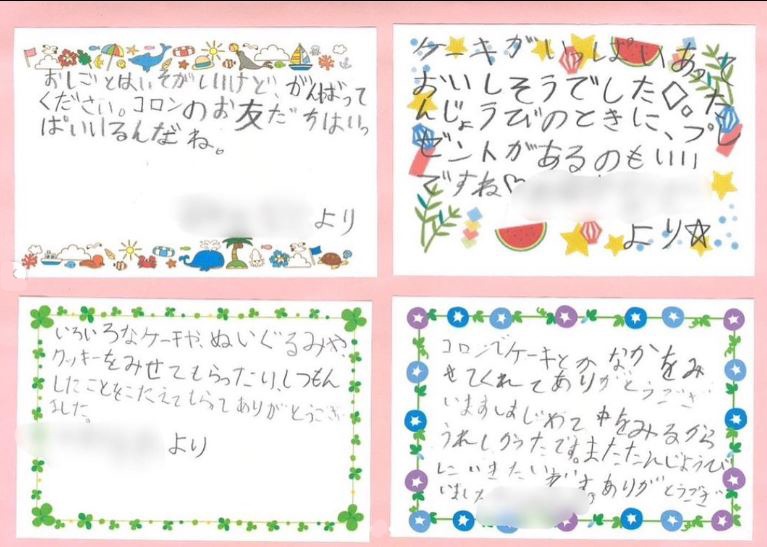 おしごとはいそがしいけど、がんばって
ください。コロンのお友だちはいっ
ぱいいるんだね。
より
ケーキがいっぱいあって
おいしそうでした◇。た
んじょうびのときに、プレ
ゼントがあるのもいい
ですね♡
より☆
いろいろなケーキや、ぬいぐるみや、
クッキーをみせてもらったり、しつもん
したことをこたえてもらってありがとうござい
ました。
より
コロンでケーキとか なかをみ
せてくれてありがとうござい
います。はじめて中をみるから
うれしかったです。またたんじょうび
にいきたいです。ありがとうござ
いました